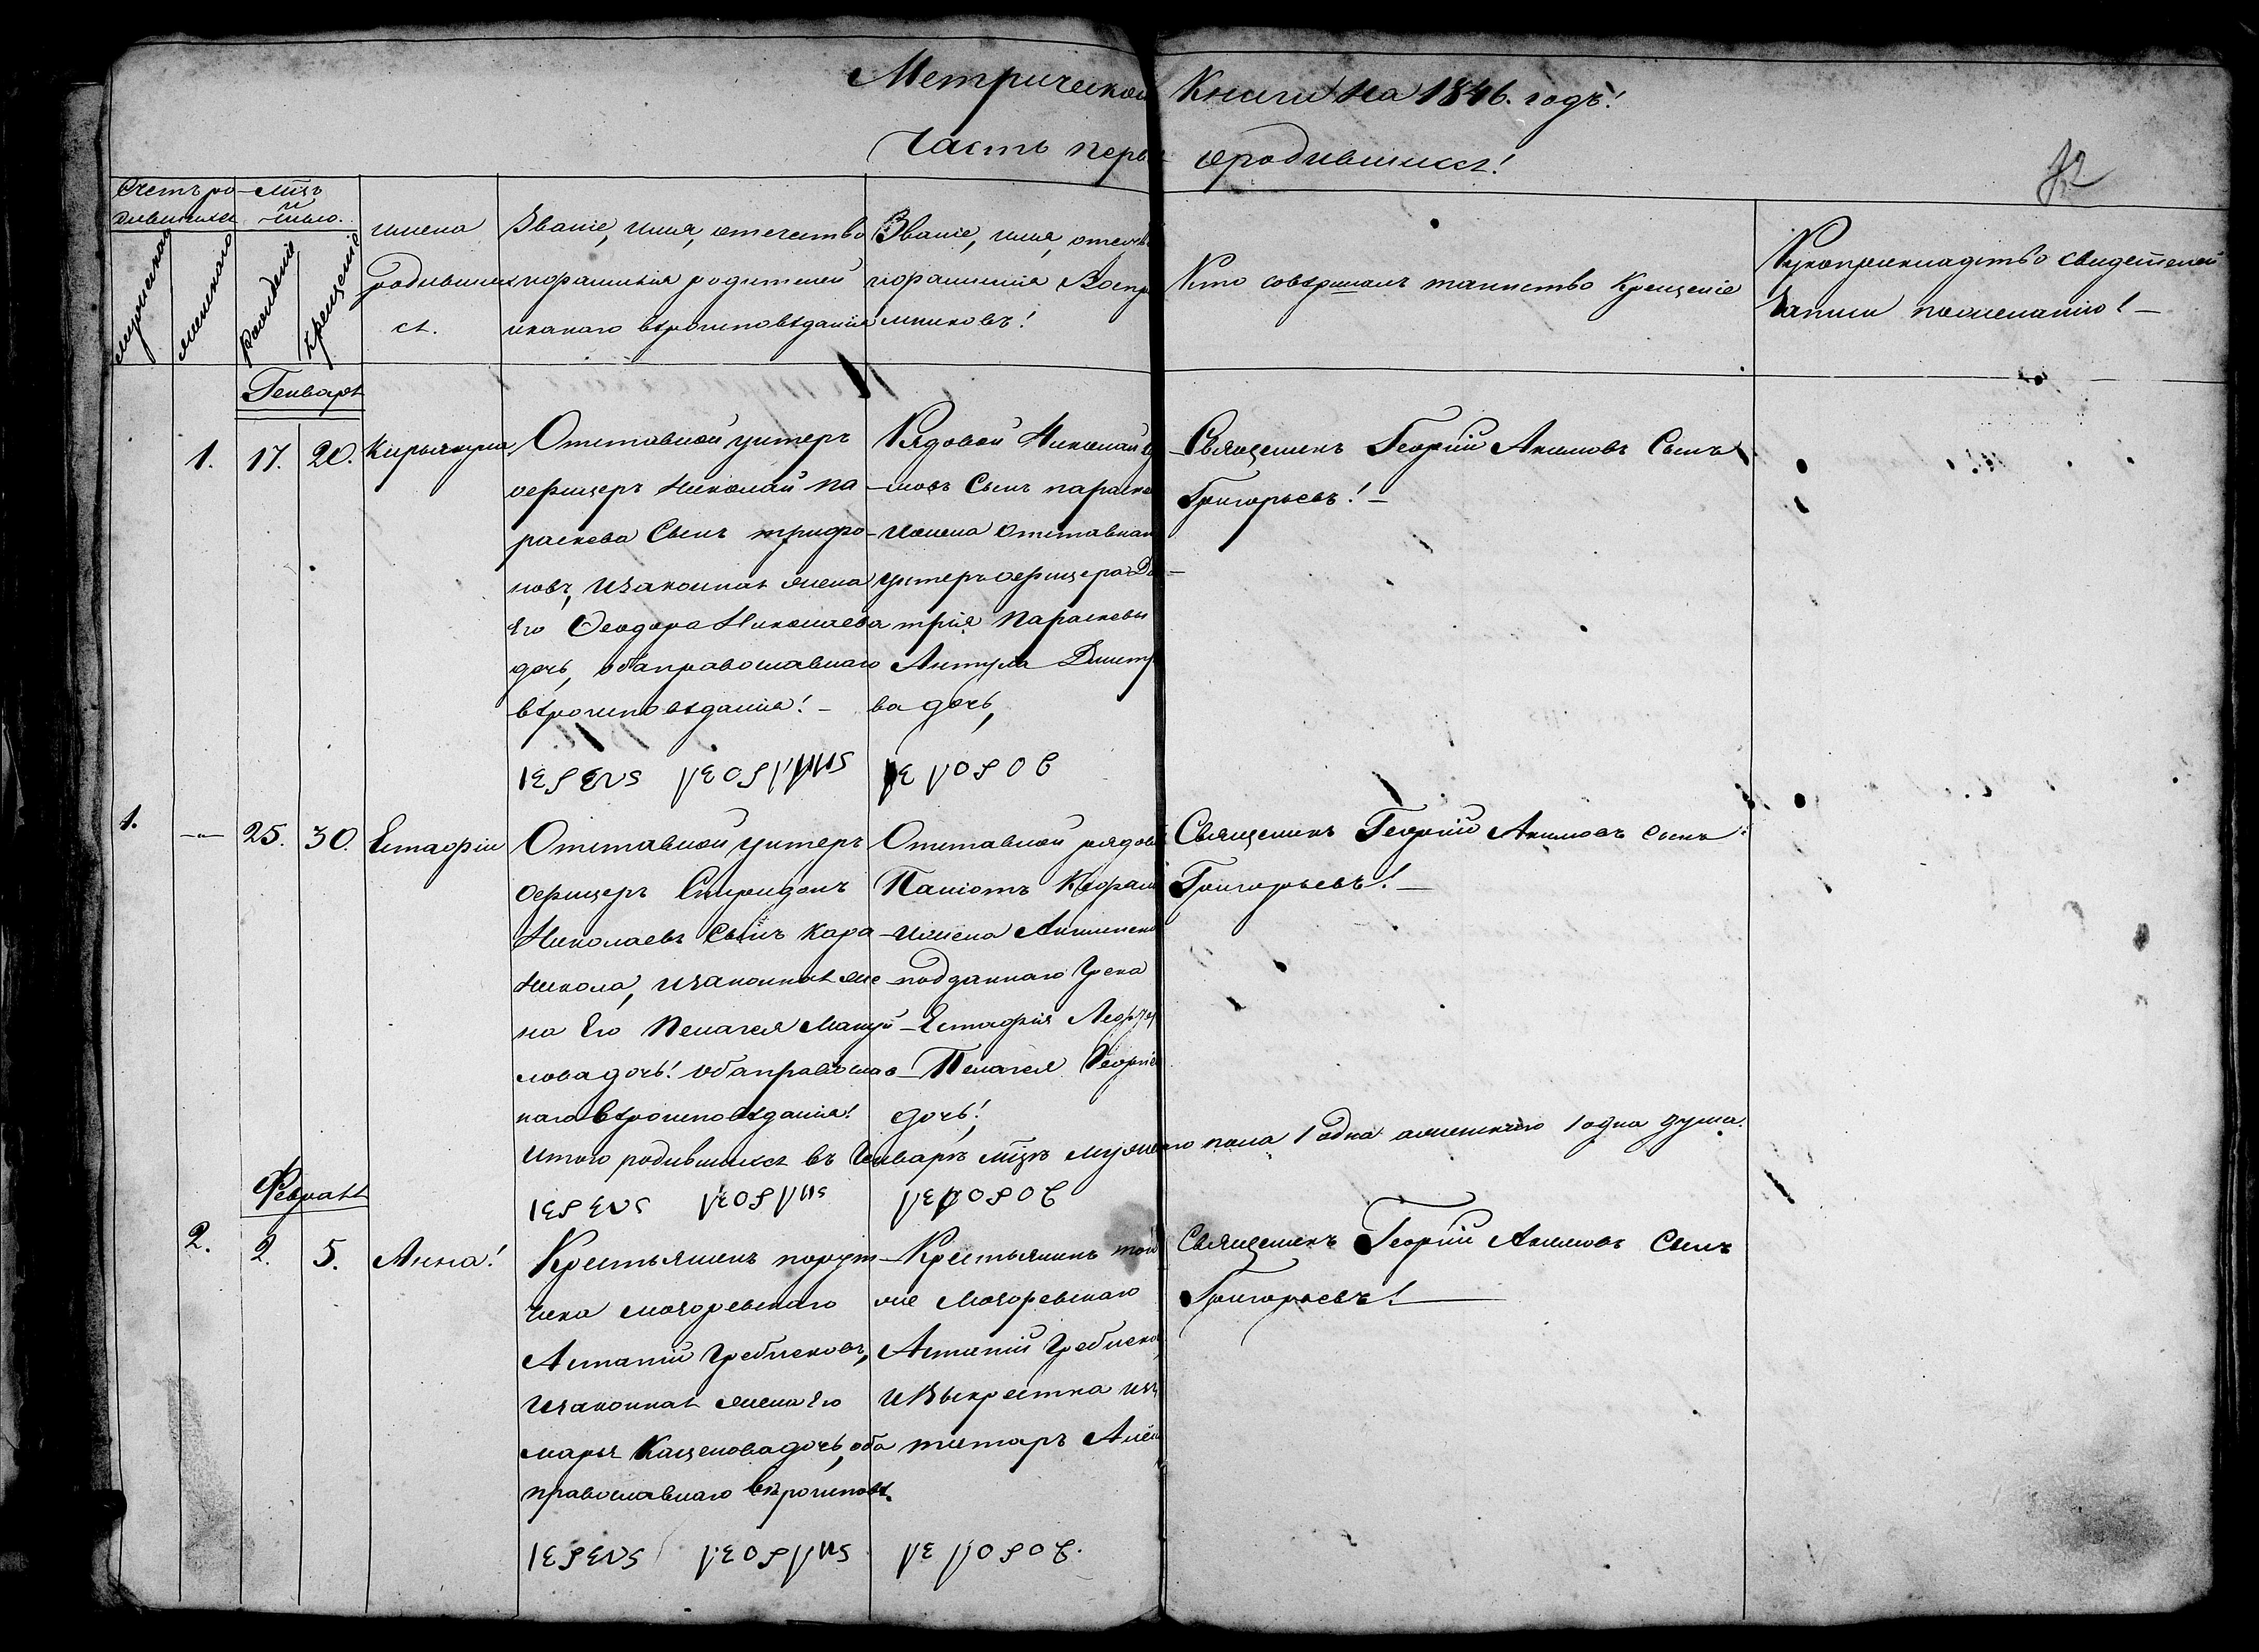 Метрической Книги на 1846. годъ!
Часть перв ородившихся!
32
Счетъ ро-
дившихся
мужеска
женскаго
мцъ
и
число.
Рожденіе
Крещеніе
имена
родивших
ся.
Званіе, имя, отечество
ифамилія родителей
икакаго вѣроисповѣданія
Званіе, имя, отечтв
ифамилія Воспр
мниковъ!
Кто совершалъ таинство Крещеніе
Рукоприкладство свидетелей
Записи пожеланію! —
Генваря
1. 17. 20. Кирьякула
Отставной унтеръ
оефицеръ Николай па
раскева Сынъ трифо-
новъ, изаконная жена
Его Ѳеодора Николаева
дочь, обаправославнаго
вѣроисповѣданія! —
Рядовой Николай
-мовъ Сынъ параске
Ижена Отставнаго
унтеръ оефицера Ди
трія Параскевы
Антула Дмитр
ва дочь,
Священикъ Георгій Акимовъ Сынъ
Григорьевъ! —
1. —„— 25. 30. Естафіи
Отставной унтеръ
оефицеръ Спиридонъ
Николаевъ Сынъ Кара
Никола, изаконная же
на Его Пелагея Мануй
лова дочь! обаправослав
наго вѣроисповѣданія!
Отставной рядов
Паніотъ
Ижена Аглинско
подданнаго Грека
Естафія
Пелагея Георгіе
дочь!
Священикъ Георгій Акимовъ сынъ
Григорьевъ! —
Итого родившихся въ Генварѣ мцѣ мужескаго пола 1 одна аженскаго 1 одна душа.
Февраля
2. 2. 5. Анна!
Крестьянинъ порут
чика мозоревскаго
Астапій Гребчековъ,
Изаконная жена Его
марья Кащеновадочь, оба
православнаго вѣроисповѣ.
Крестьянинъ той
же Мозоревскаго
Астапій Гребчеко
ИВыкрестка изъ
татаръ Алён
Священикъ Георгій Акимовъ Сынъ
Григорьевъ! —